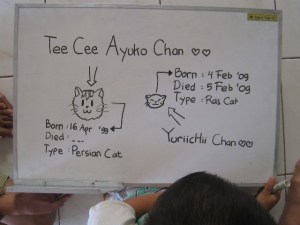 Tee Cee Ayuko Chan ♡♡
Born : 4 Feb '09
Died : 5 Feb '09
Type : Ras Cat
Born : 16 Apr '98
Died : ---
Type : Persian Cat
YuriicHii Chan ♡♡